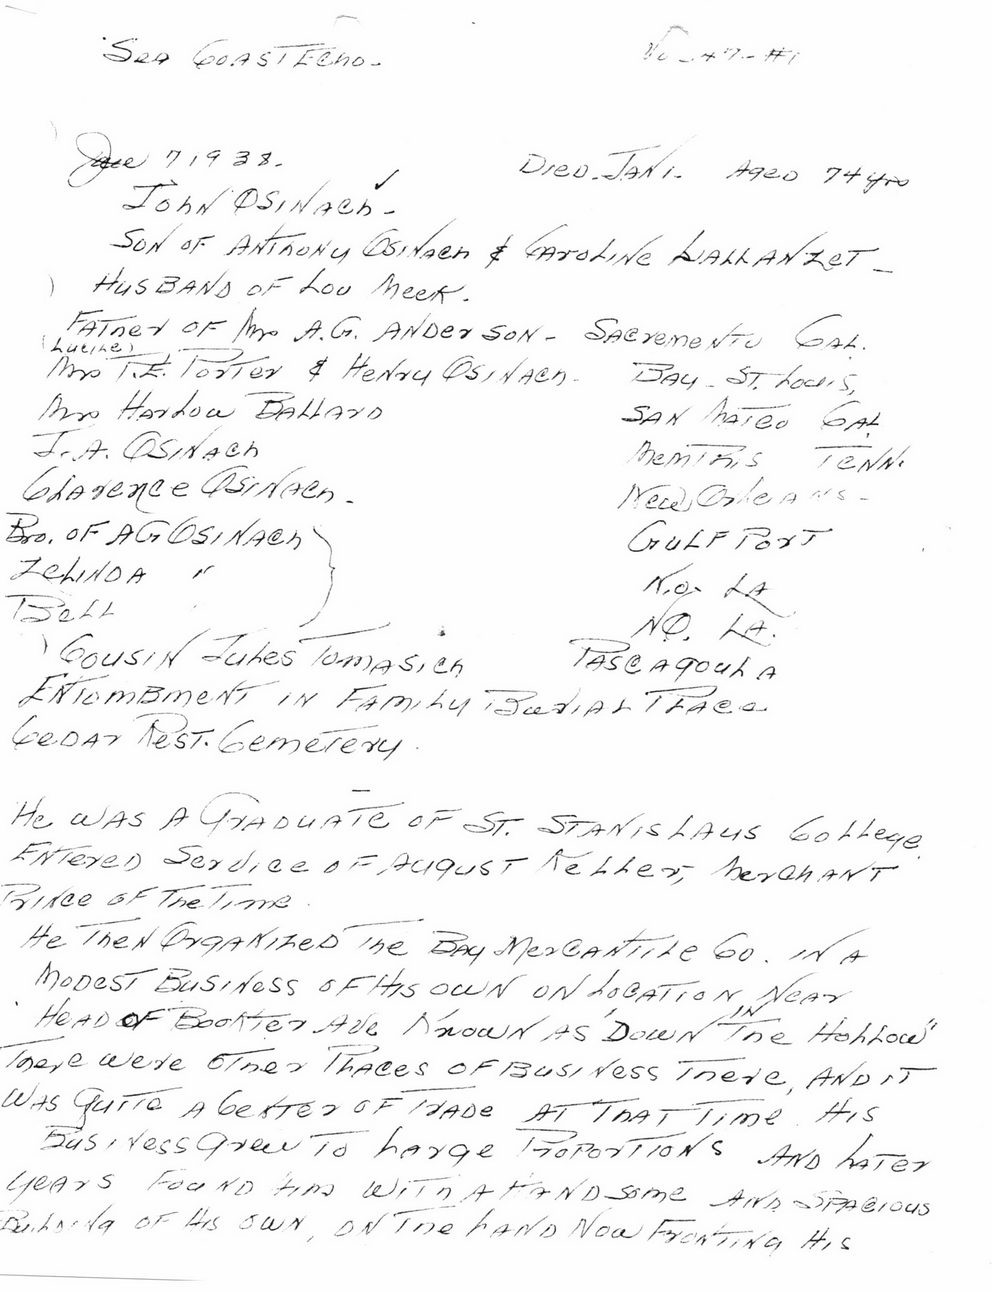 Sea Coast Echo - Vo - 47 - #1
7 1938. Died. Jan 1. Aged 74 yrs
John Osinach -
Son of Anthony Osinach & Caroline -
Husband of Lou Meek.
Father of Mrs A.G. Anderson - Sacremento Cal.
(Lucile)
Mrs T.E. Porter & Henry Osinach. Bay - St. Louis,
Mrs Harlow Ballard San Mateo Cal.
J. A. Osinach Memphis Tenn.
Clarence Osinach - New Orleans -
Bro. of A G Osinach Gulf Port
Zelinda " N.O. LA
Bell N.O. LA.
Cousin Jules Tomasich Pascagoula
Entombment in Family Burial Place
Cedar Rest. Cemetery.
He was a Graduate of St. Stanislaus College.
Entered Service of August Keller, Merchant
Prince of The Time.
He Then Organized The Bay Mercantile Co. in a
Modest Business of His own on Location Near
Head of Bookter Ave Known as "Down in The Hollow"
There were other Places of Business There, and it
was Quite a Center of Trade at That Time. His
Business Grew To Large Proportions and Later
Years Found Him with a Handsome and Spacious
Building of His own, on The Land Now Fronting His